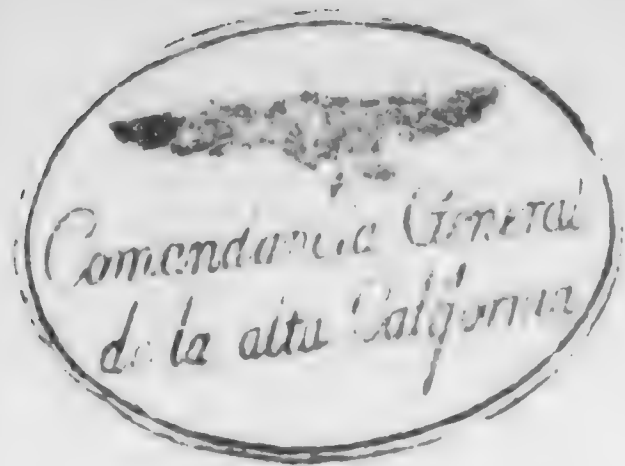 Comandancia General
de la alta California